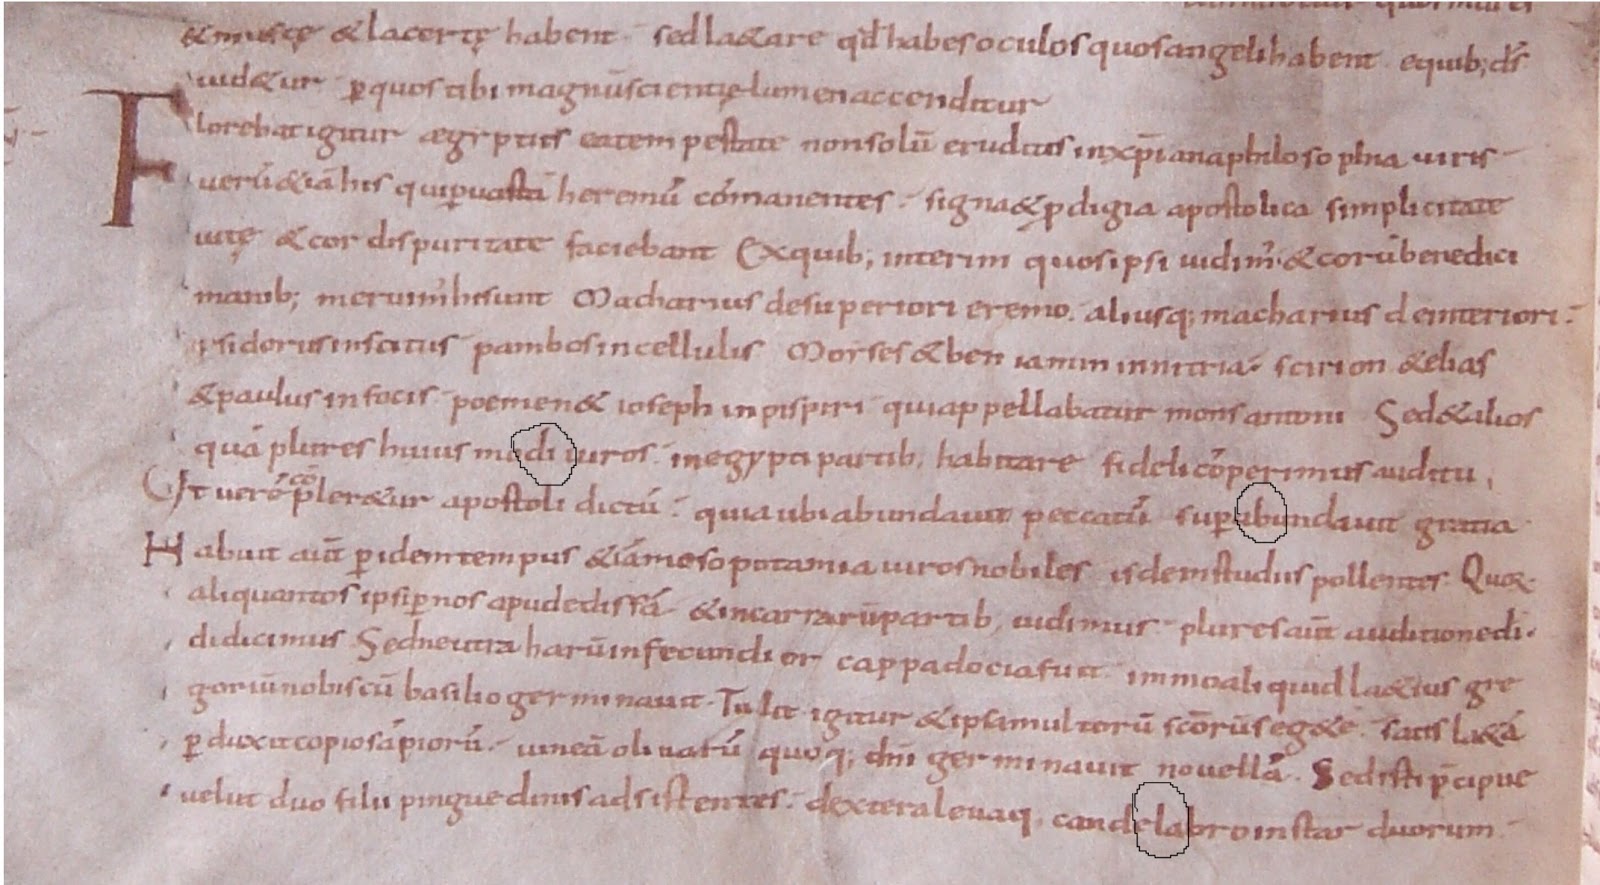 &muscę &lacertę habent · sed la&are qđ habes oculos quos angeli habent · equib; dš
uid&ur · ꝑ quos tibi magnū scientię lumen accenditur
Florebat igitur ægyptus eatempestate non solū eruditis inxp̄iana philosophia uiris ·
uerū&iā his qui ꝑ uastā heremū cōmanentes · signa & ꝓdigia apostolica simplicitate
uitę & cordis puritate faciebant Ex quib; interim quos ipsi uidim̄ · & corū benedici
manib; meruim̄ hi sunt Macharius de superiori eremo · aliusq; macharius deinteriori ·
isidorus in scitus · pambos in cellulis Moises & beniamin in nitria · scirion & elias
& paulus in focis · poemen & ioseph in pispiri · qui appellabatur mons antonii Sed & alios
quā plures huius modi uiros · in egypti partib; habitare fideli cōperimus auditu ;
Ut uero cōpler&ur apostoli dictū · quia ubi abundauit peccatū suꝑabundauit gratia ·
Habuit aūt ꝑ idem tempus &iā mesopotamia uiros nobiles isdem studiis pollentes · Quoꝝ
aliquantos ipsi ꝑ nos apud edissā · & in carrarū partib; uidimus · plures aūt auditione di·
didicimus Sed neutra harū infecundior cappadocia fuit · immo aliquid l&ius gre
goriū nobis cū basilio germinauit · Tulit igitur & ipsa multorū scōrū seg&ē · satis l&ā
ꝑduxit copiosā piorū · uineā oliuatū quoq; dn̄i germinauit nouellā · Sed isti p̄cipue
uelut duo filii pinguedinis adsistentes · dextera leuaq; candelabro instar duorum ·